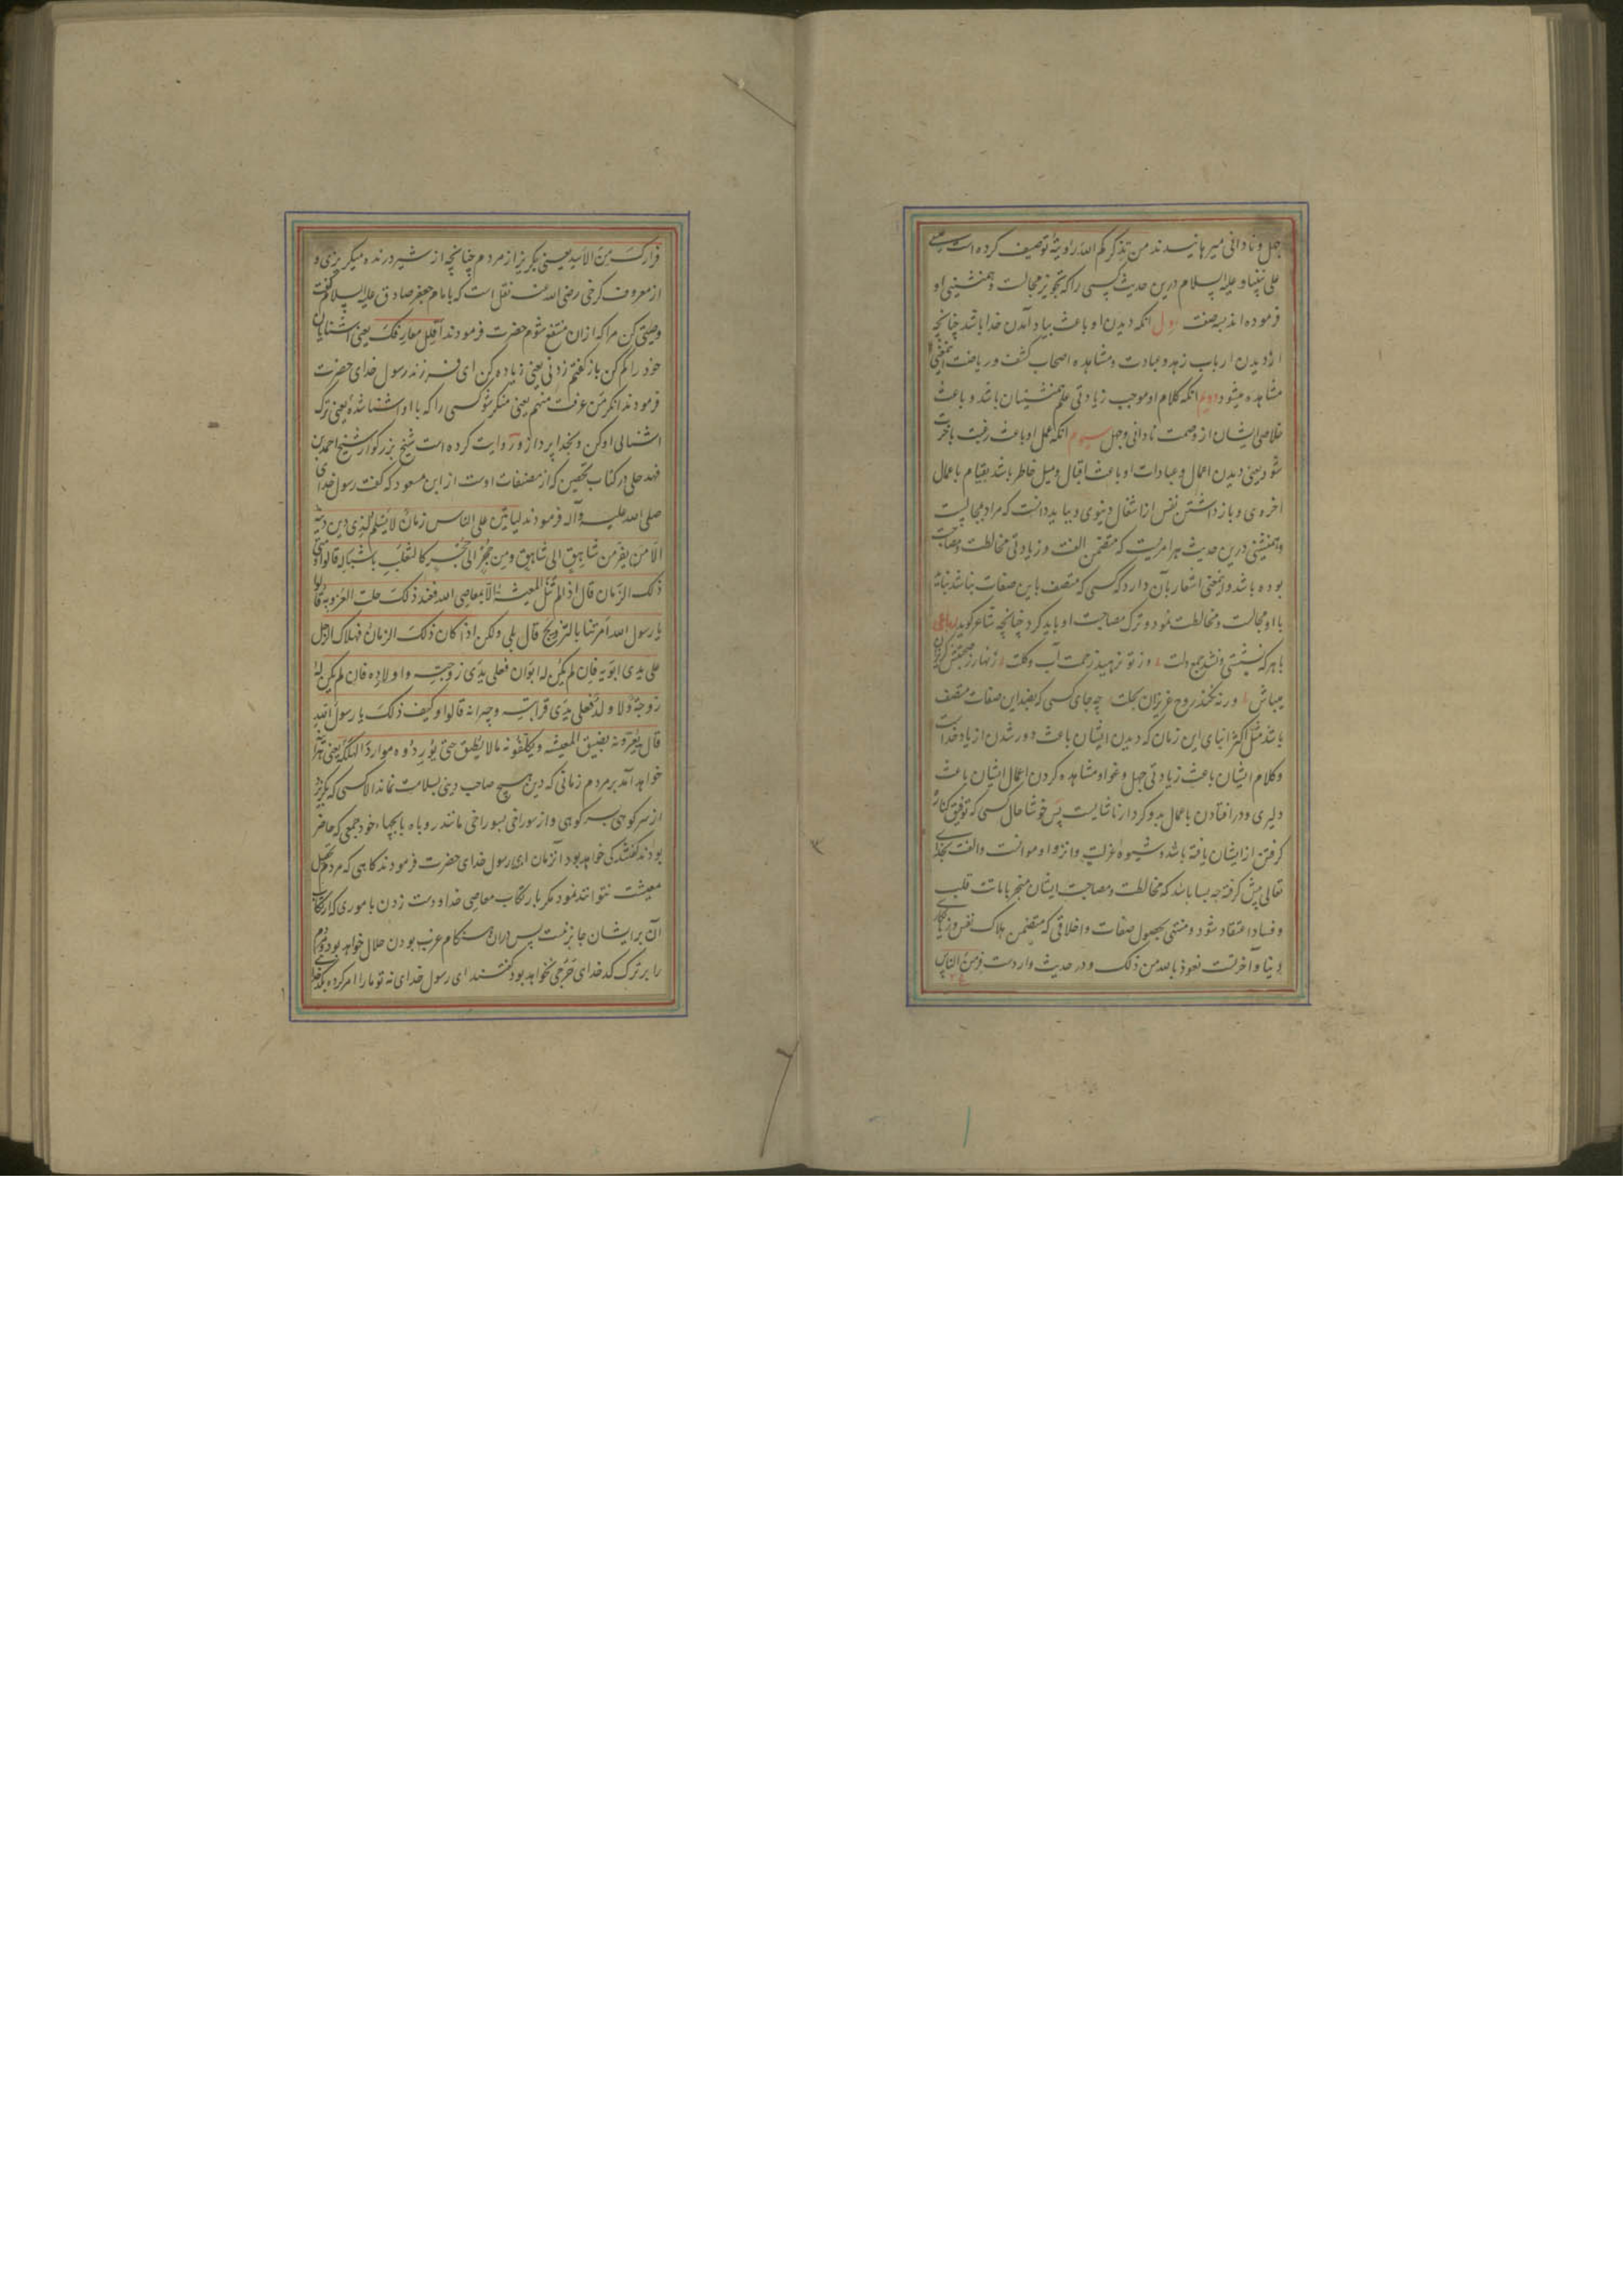 جهل و نادانی میرهانیدند من یذکرکم الله رؤیته توصیف کرده است عیسی
علی نبینا و علیه السلام درین حدیث کسی را که تجویز مجالست و همنشینی او
فرموده اند بسه صفت اول انکه دیدن او باعث بیاد آمدن خدا باشد چنانچه
از دیدن ارباب زهد و عبادت و مشاهده اصحاب کشف و ریاضت اینمعنی
مشاهده میشود دویم انکه کلام او موجب زیادتی علم همنشینان باشد و باعث
خلاصی ایشان از وصمت نادانی و جهل سیوم انکه عمل او باعث رغبت باخرت
شود یعنی دیدن اعمال و عبادات او باعث اقبال و میل خاطر باشد بقیام باعمال
اخروی و باز داشتن نفس از اشغال دنیوی و بباید دانست که مراد بمجالست
و همنشینی درین حدیث هر امریست که متضمن الفت و زیادتی مخالطت و مصاحبت
بوده باشد و اینمعنی اشعار بآن دارد که کسی که متصف باین صفات نباشد نباید
با او مجالست و مخالطت نمود و ترک مصاحبت او باید کرد چنانچه شاعر کوید رباعی
با هر که نشستی و نشد جمع دلت وز تو نرهید زحمت آب و کلت زنهار ز صحبتش کریزان
میباش ورنه نکند روح عزیزان بحلت چه جای کسی که بضد این صفات متصف
باشد مثل اکثر ابنای این زمان که دیدن ایشان باعث دور شدن از یاد خداست
و کلام ایشان باعث زیادتی جهل و غوا و مشاهده کردن اعمال ایشان باعث
دلیری و در افتادن باعمال بد و کردار ناشایست پس خوشا حال کسی که توفیق کناره
کرفتن از ایشان یافته باشد و شیوه عزلت و انزوا و موانست و الفت بخدای
تعالی پیش کرفته چه بسا باشد که مخالطت و مصاحبت ایشان منجر باماتت قلب
و فساد اعتقاد شود و منتهی بحصول صفات و اخلاقی که متضمن هلاک نفس و زیانکاری
دنیا و آخرتست نعوذ بالله من ذلک و در حدیث واردست فر من الناس
فرارک من الاسد یعنی بکریز از مردم چنانچه از شیر درنده میکریزی و
از معروف کرخی رضی الله عنه نقل است که بامام جعفر صادق علیه السلام کفت
وصیتی کن مرا که ازان منتفع شوم حضرت فرمودند اقلل معارفک یعنی اشنایان
خود را کم کن باز کفتم زدنی یعنی زیاده کن ای فرزند رسول خدای حضرت
فرمودند انکر من عرفت منهم یعنی منکر شو کسی را که با او اشنا شده یعنی ترک
اشنائی او کن و بخدا پرداز و روایت کرده است شیخ بزرکوار شیخ احمد بن
فهد حلی در کتاب تحصین که از مصنفات اوست از ابن مسعود که کفت رسول خدای
صلی الله علیه و آله فرمودند لیاتین علی الناس زمان لا یسلم لذی دین دینه
الا من یفر من شاهق الی شاهق و من جحر الی جحر کالثعلب باشباله قالوا و متی
ذلک الزمان قال اذا لم تنل المعیشة الا بمعاصی الله فعند ذلک حلت العزوبة قالوا
یا رسول الله امرتنا بالتزویج قال بلی ولکن اذا کان ذلک الزمان فهلاک الرجل
علی یدی ابویه فان لم یکن له ابوان فعلی یدی زوجته و اولاده فان لم یکن له
زوجة ولا ولد فعلی یدی قرابته و جیرانه قالوا و کیف ذلک یا رسول الله
قال یعیرونه بضیق المعیشة و یکلفونه ما لا یطیق حتی یوردوه موارد الهلکة یعنی هر آینه
خواهد آمد بر مردم زمانی که دین هیچ صاحب دینی بسلامت نماند الا کسی که بکریزد
از سر کوهی بسر کوهی و از سوراخی بسوراخی مانند روباه با بچهاء خود جمعی که حاضر
بودند کفتند کی خواهد بود آنزمان ای رسول خدای حضرت فرمودند کاهی که مردم تحصیل
معیشت نتوانند نمود مکر بارتکاب معاصی خدا و دست زدن باموری که ارتکاب
آن بر ایشان جایز نیست پس دران هنکام عزب بودن حلال خواهد بود و مردم
را بر ترک کدخدای حرجی نخواهد بود کفتند ای رسول خدای نه تو ما را امر کرده بکدخدای